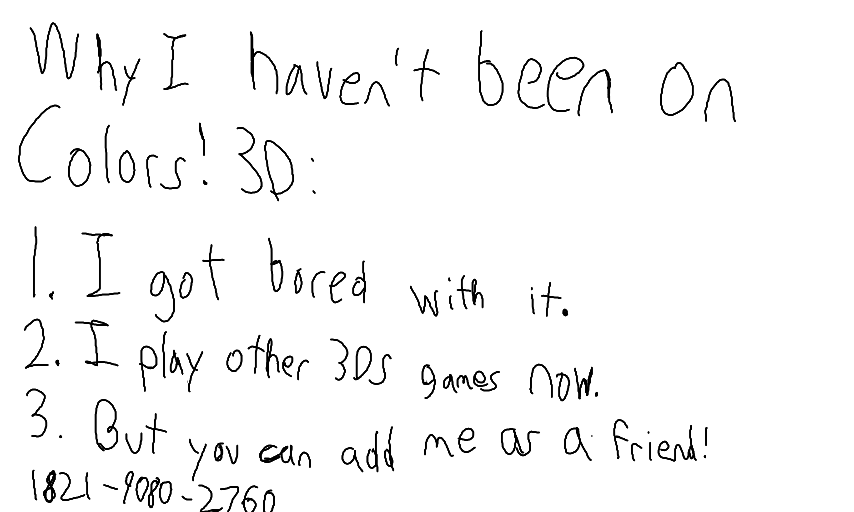 Why I haven't been on
Colors! 3D:
1. I got bored with it.
2. I play other 3DS games now.
3. But you can add me as a friend!
1821-9080-2760